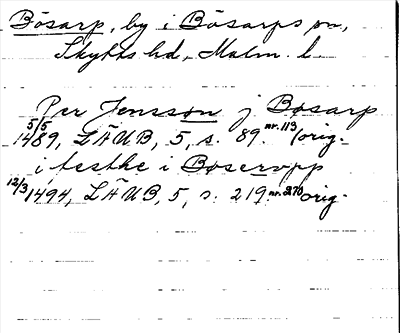 Bösarp, by i Bösarps sn,
Skytts hd, Malm. l.
Per Jensson j Bosarp
5/5 1489, LÄUB, 5, s. 89. nr. 113 (orig.
i testhe i Boservpp
12/3 1494, LÄUB, 5, s. 219. nr. 270 orig.